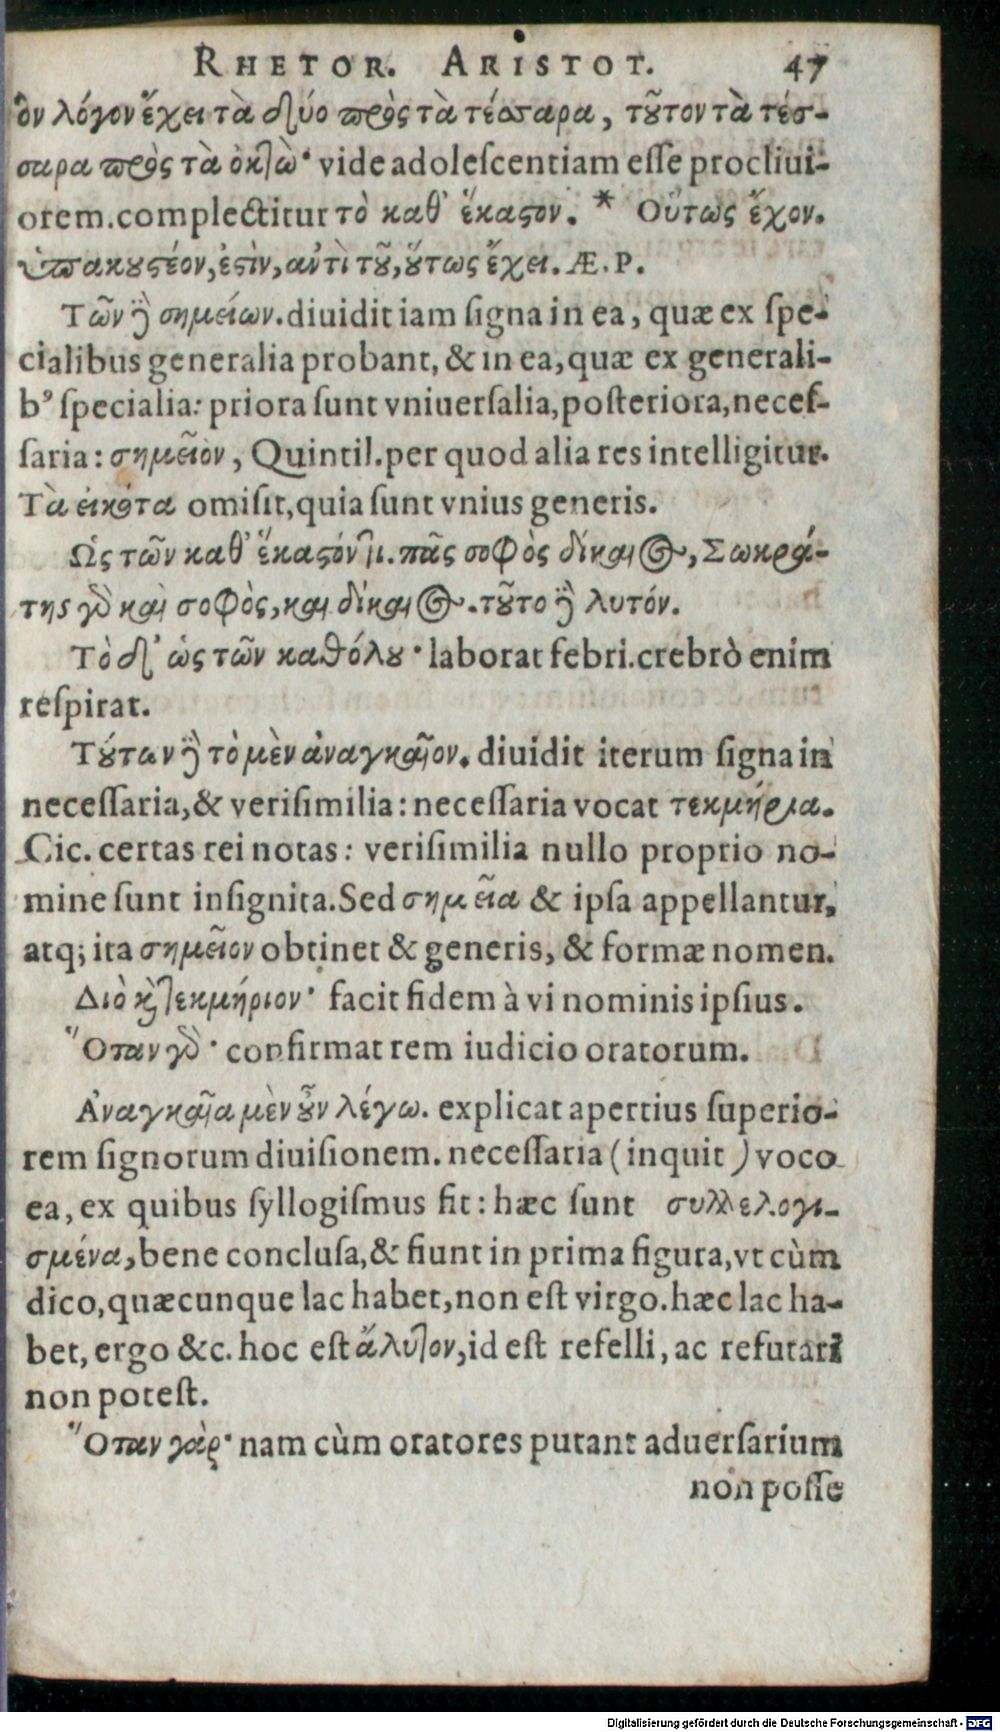 RHETOR. ARISTOT. 47
ὃν λόγον ἔχει τὰ δύο πρὸς τὰ τέσσαρα, τοῦτον τὰ τέσ-
σαρα πρὸς τὰ ὀκτὼ· vide adolescentiam esse procliui-
orem. complectitur τὸ καθ' ἕκαστον. * Οὕτως ἔχον.
ὑπακουστέον, ἐστὶν, ἀντὶ τοῦ, οὕτως ἔχει. Æ. P.
Τῶν δὲ σημείων. diuidit iam signa in ea, quæ ex spe-
cialibus generalia probant, & in ea, quæ ex generali-
bꝰ specialia: priora sunt vniuersalia, posteriora, neces-
saria: σημεῖον, Quintil. per quod alia res intelligitur.
Τὰ εἰκότα omisit, quia sunt vnius generis.
Ὡς τῶν καθ' ἕκαστόν τι. πᾶς σοφὸς δίκαιος, Σωκρά-
της γὸ καὶ σοφὸς, καὶ δίκαιος. τοῦτο δὲ λυτόν.
Τὸ δ' ὡς τῶν καθόλου· laborat febri. crebrò enim
respirat.
Τούτων δὲ τὸ μὲν ἀναγκαῖον. diuidit iterum signa in
necessaria, & verisimilia: necessaria vocat τεκμήρια.
Cic. certas rei notas: verisimilia nullo proprio no-
mine sunt insignita. Sed σημεῖα & ipsa appellantur,
atq; ita σημεῖον obtinet & generis, & formæ nomen.
Διὸ καὶ τεκμήριον· facit fidem à vi nominis ipsius.
Ὅταν γὸ· confirmat rem iudicio oratorum.
Ἀναγκαῖα μὲν οὖν λέγω. explicat apertius superio-
rem signorum diuisionem. necessaria (inquit) voco
ea, ex quibus syllogismus fit: hæc sunt συλλελογι-
σμένα, bene conclusa, & fiunt in prima figura, vt cùm
dico, quæcunque lac habet, non est virgo. hæc lac ha-
bet, ergo &c. hoc est ἄλυτον, id est refelli, ac refutari
non potest.
Ὅταν γὰρ· nam cùm oratores putant aduersarium
non posse
Digitalisierung gefördert durch die Deutsche Forschungsgemeinschaft - DFG